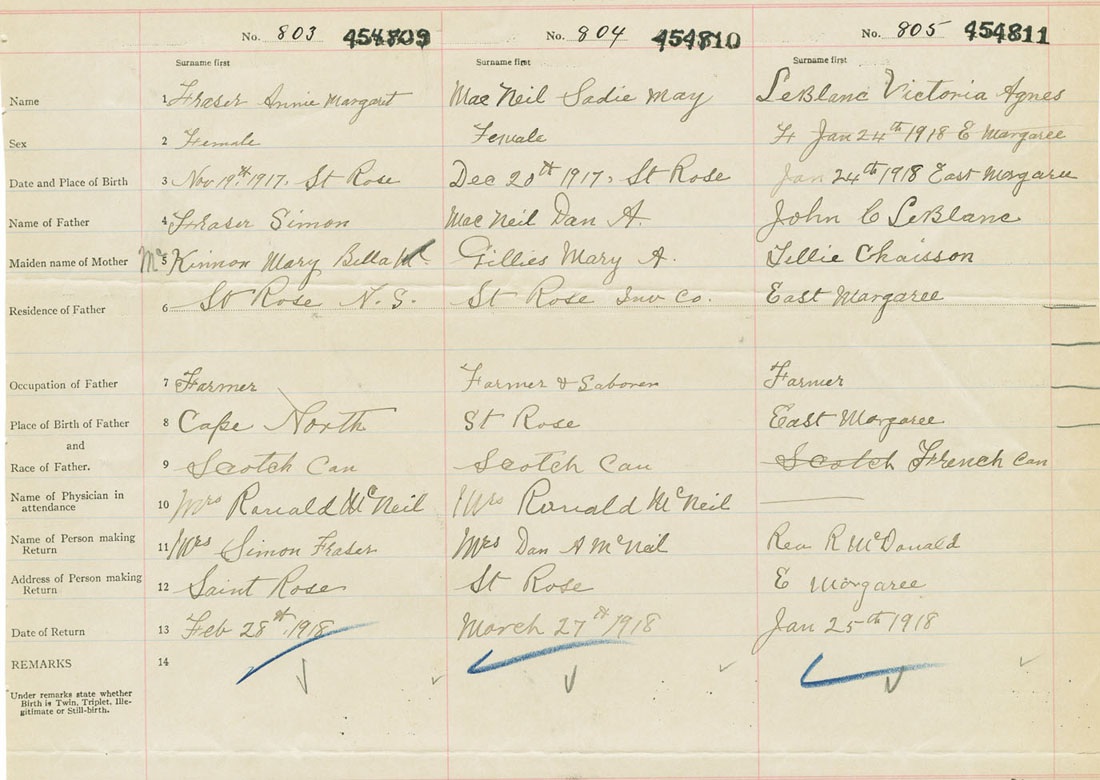 No. 803 454809 No. 804 454810 No. 805 454811
Surname first Surname first Surname first
Name 1 Fraser Annie Margaret Mac Neil Sadie May LeBlanc Victoria Agnes
Sex 2 Female Female F Jan 24th 1918 E Margaree
Date and Place of Birth 3 Nov 19th 1917. St Rose Dec 20th 1917, St Rose Jan 24th 1918 East Margaree
Name of Father 4 Fraser Simon Mac Neil Dan A. John C LeBlanc
Maiden name of Mother Mc 5 Kinnon Mary Bella Mc Gillies Mary A. Tellie Chaisson
Residence of Father 6 St Rose N.S. St Rose Inv Co. East Margaree
Occupation of Father 7 Farmer Farmer & Laborer Farmer
Place of Birth of Father 8 Cape North St Rose East Margaree
and
Race of Father. 9 Scotch Can Scotch Can Scotch French Can
Name of Physician in
attendance 10 Mrs Ronald McNeil Mrs Ronald McNeil
Name of Person making
Return 11 Mrs Simon Fraser Mrs Dan A McNeil Rev R McDonald
Address of Person making
Return 12 Saint Rose St Rose E Margaree
Date of Return 13 Feb 28th 1918 March 27th 1918 Jan 25th 1918
REMARKS 14
Under remarks state whether
Birth is Twin, Triplet, Ille-
gitimate or Still-birth.